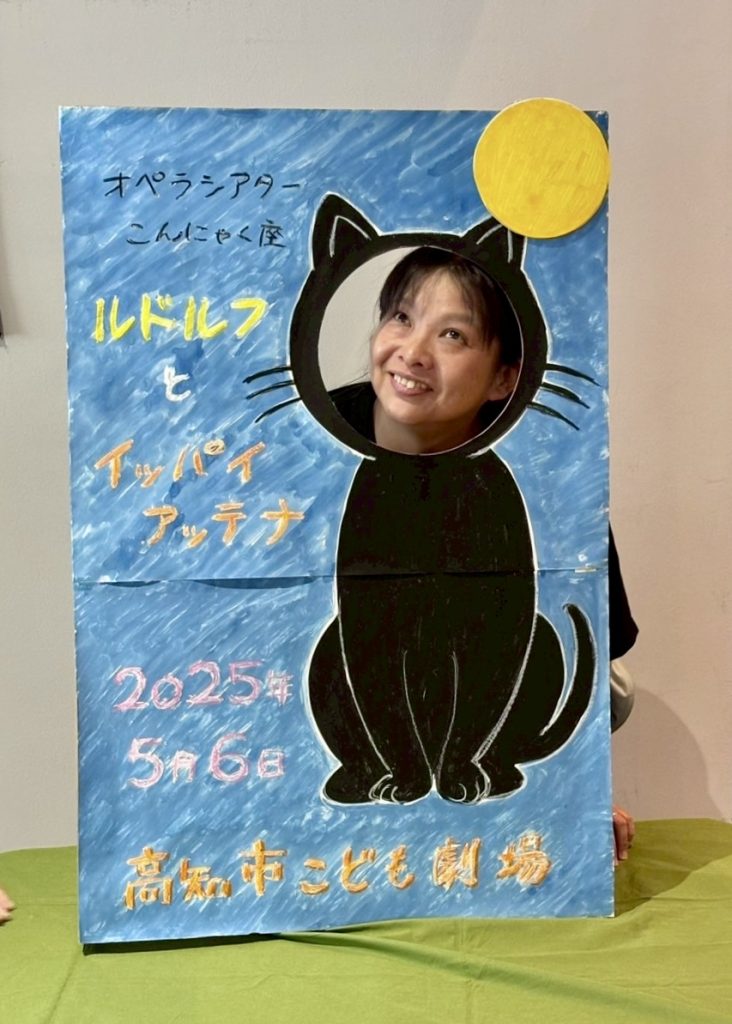 オペラシアター
こんにゃく座
ルドルフ
と
イッパイ
アッテナ
2025年
5月6日
高知市こども劇場